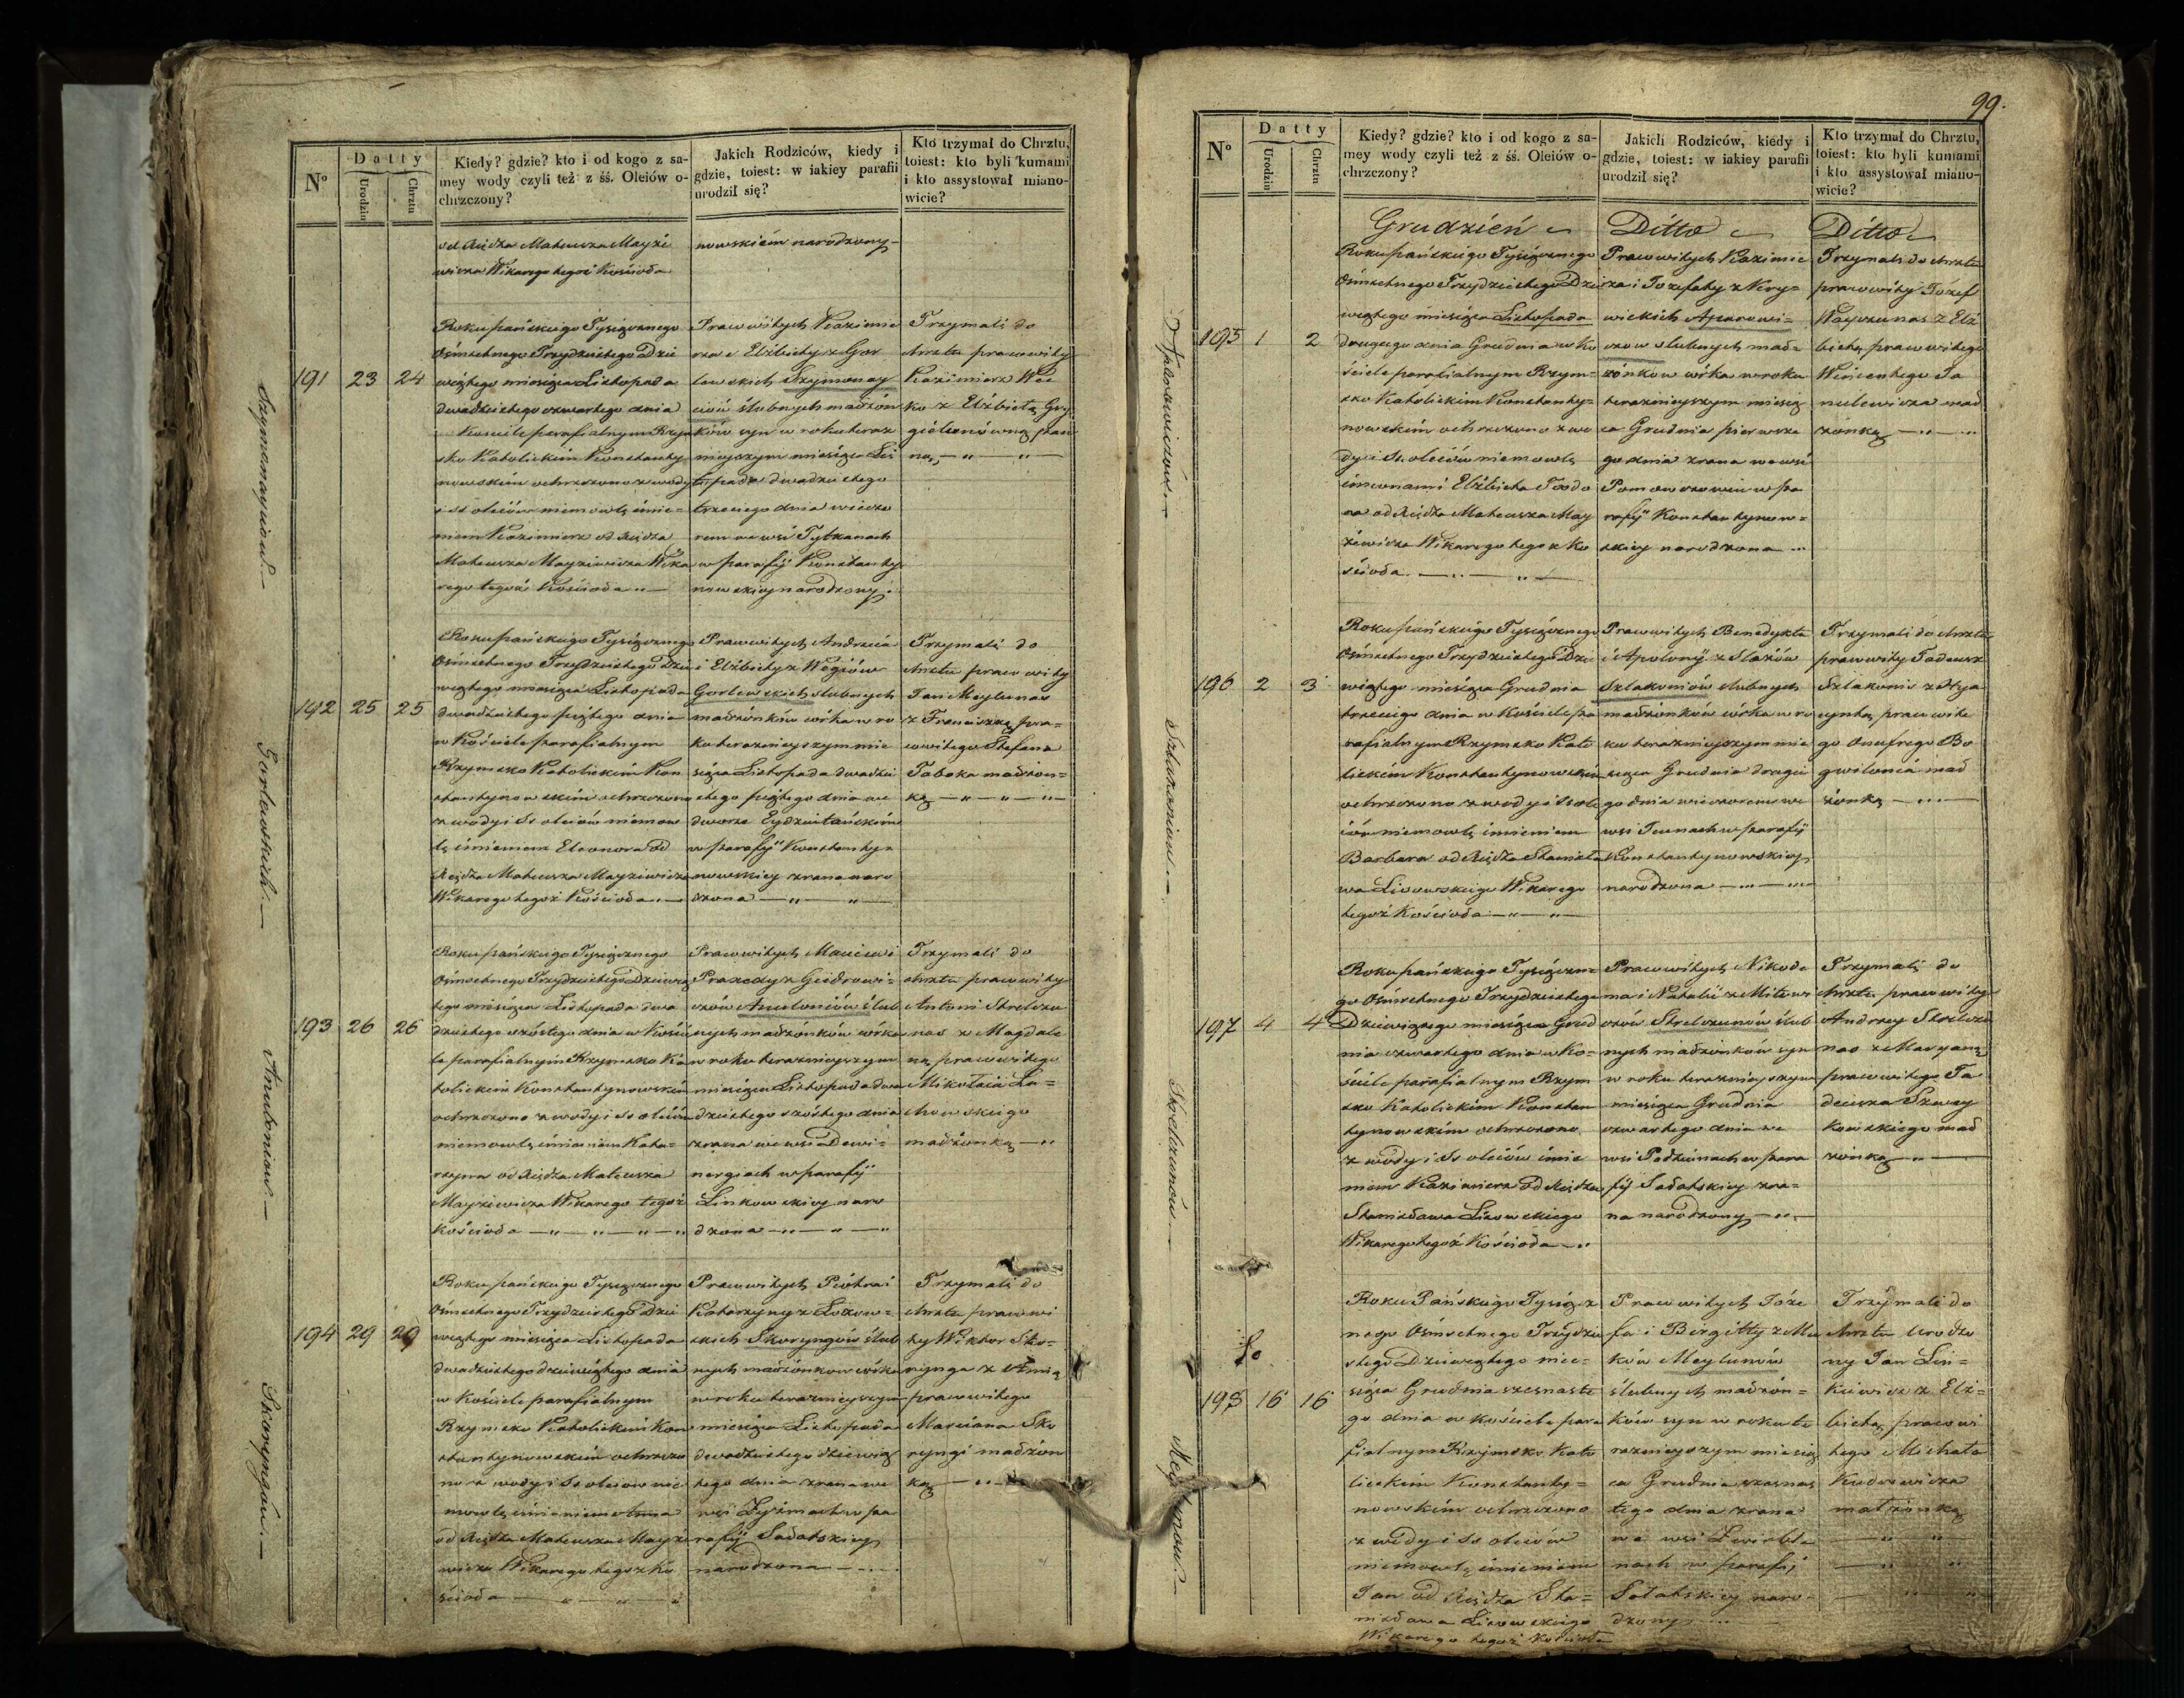 Nº
Datty
Urodzin
Chrztu
Kiedy? gdzie? kto i od kogo z sa-
mey wody czyli też z śś. Oleiów o-
chrzczony?
Jakich Rodziców, kiedy i
gdzie, toiest: w iakiey parafii
urodził się?
Kto trzymał do Chrztu,
toiest: kto byli kumami
i kto assystował miano-
wicie?
od Xiędza Mateusza Mayzie
wicza Wikarego tegoż Kościoła
nowskiem narodzony
Szymanayciow.
191 23 24
Roku pańskiego Tysiącznego
Ośmsetnego Trzydziestego Dzie
wiątego miesiąca Listopada
dwudziestego czwartego dnia
w Kosciele parafialnym Rzym
sko Katolickim Konstanty
nowskim ochrzczono z wody
i SS oleiów niemowlę imie-
niem Kazimierz od Xiędza
Mateusza Mayziewicza Wika
rego tegoż Kościoła
Prawowitych Kazimie
rza i Elżbiety z Gor
lewskich Szymonay
ciów ślubnych małżon
ków syn w roku teraz
nieyszym miesiąca Lis
topada dwudziestego
trzeciego dnia wieczo
rem we wsi Tytkanach
w parafij Konstanty
nowskiey narodzony.
Trzymali do
chrztu prawowity
Kazimierz Woe
ko z Elżbietą Gry
gielunówną pan
ną
Gorlewskich.
192 25 25
Roku pańskiego Tysiącznego
Ośmsetnego Trzydziestego Dzie
wiątego miesiąca Listopada
dwudziestego piątego dnia
w Kościele parafialnym
Rzymsko Katolickim Kon
stantynowskim ochrzczono
z wody i SS oleiów niemow
lę imieniem Eleonora od
Xiędza Mateusza Mayziewicza
Wikarego tegoż Kościoła
Prawowitych Andrzeia
i Elżbiety z Wegiów
Gorlewskich slubnych
małżonków córka w ro
ku teraznieyszym mie
siąca Listopada dwudzie
stego piątego dnia we
dworze Eydzietańskim
w parafij Konstanty
nowskiey zrana naro
dzona
Trzymali do
chrztu prawowity
Jan Meylunas
z Franciszką pra-
wowitego Stefana
Taboka małżon-
ką
Anutoniow.
193 26 26
Roku pańskiego Tysiącznego
Ośmsetnego Trzydziestego Dziewią
tego miesiąca Listopada dwu
dziestego szóstego dnia w Koście
le parafialnym Rzymsko Ka
tolickim Konstantynowskim
ochrzczono z wody i SS oleiów
niemowlę imieniem Kata-
rzyna od Xiędza Mateusza
Mayziewicza Wikarego tegoż
kościoła
Prawowitych Macieia i
Praxedy z Giedrowi-
czów Anutoniów ślub
nych małżonków córka
w roku teraznieyszym
miesiąca Listopada dwu
dziestego szóstego dnia
zrana we wsi Dowi-
nergiach w parafij
Linkowskiey naro
dzona
Trzymali do
chrztu prawowity
Antoni Strelczu
nas z Magdale
ną prawowitego
Mikołaia La-
chowskiego
małżonką
Skoryngów.
194 29 29
Roku pańskiego Tysiącznego
Ośmsetnego Trzydziestego Dzie
wiątego miesiąca Listopada
dwudziestego dziewiątego dnia
w Kościele parafialnym
Rzymsko Katolickim Kon
stantynowskim ochrzczo
no z wody i SS oleiow nie
mowlę imieniem Anna
od Xiędza Mateusza Mayzie
wicza Wikarego tegoż Ko
ścioła
Prawowitych Piotra i
Katarzyny z Łozow-
skich Skoryngów ślub
nych małżonkow córka
w roku teraznieyszym
miesiąca Listopada
dwudziestego dziewią
tego dnia zrana we
wsi Zyźmach w pa
rafij Sałatskiey
narodzona
Trzymali do
chrztu prawowi
ty Wiktor Sko-
rynga z Anną
prawowitego
Marciana Sko
ryngi małżon
ką
99.
Nº
Datty
Urodzin
Chrztu
Kiedy? gdzie? kto i od kogo z sa-
mey wody czyli też z śś. Oleiów o-
chrzczony?
Jakich Rodziców, kiedy i
gdzie, toiest: w iakiey parafii
urodził się?
Kto trzymał do Chrztu,
toiest: kto byli kumami
i kto assystował miano-
wicie?
Grudzień Ditto Ditto
Aparowiczów.
195 1 2
Roku pańskiego Tysiącznego
Ośmsetnego Trzydziestego Dzie
wiątego miesiąca Listopada
drugiego dnia Grudnia w Ko
ściele parafialnym Rzym-
sko Katolickim Konstanty-
nowskim ochrzczono z wo
dy i SS. oleiów niemowlę
imionami Elżbieta Teodo
ra od Xiędza Mateusza May
ziewicza Wikarego tegoż Ko
ścioła.
Prawowitych Kazimie
rza i Jozefaty z Nery-
wickich Aparowi-
czow slubnych mał-
żónkow córka w roku
teraznieyszym miesią
ca Grudnia pierwsze
go dnia zrana we wsi
Pomowszowiu w pa
rafij Konstantynow-
skiey narodzona
Trzymali do chrztu
prawowity Józef
Wayczunas z Elż
bietą prawowitego
Wincentego Ja
nulewicza mał
żonką
Szlakoniow.
196 2 3
Roku pańskiego Tysiącznego
Ośmsetnego Trzydziestego Dzie
wiątego miesiąca Grudnia
trzeciego dnia w Kościele pa
rafialnym Rzymsko Kato
lickim Konstantynowskim
ochrzczono z wody i SS ole
iów niemowlę imieniem
Barbara od Xiędza Stanisła
wa Lisowskiego Wikarego
tegoż Kościoła
Prawowitych Benedykta
i Apolonij z Słażów
Szlakoniów slubnych
małżonków córka w ro
ku teraznieyszym mie
siąca Grudnia drugie
go dnia wieczorem we
wsi Junach w parafij
Konstantynowskiey
narodzona
Trzymali do chrztu
prawowity Tadeusz
Szlakonis z Hya
cyntą prawowite
go Onufrego Bo
gwilonia mał
żonką
Strelczunów
197 4 4
Roku pańskiego Tysiączne-
go Ośmsetnego Trzydziestego
Dziewiątego miesiąca Grud
nia czwartego dnia w Ko-
ściele parafialnym Rzym
sko Katolickim Konstan
tynowskim ochrzczono
z wody i SS oleiów imie
niem Kazimierz od Xiędza
Stanisława Lisowskiego
Wikarego tegoż Kościoła
Prawowitych Nikode
ma i Natalii z Mitowi
czów Strelczunów ślub
nych małżonków syn
w roku teraznieyszym
miesiąca Grudnia
czwartego dnia we
wsi Podziunach w para
fij Sałatskiey zra-
na narodzony
Trzymali do
chrztu prawowity
Andrzey Strelczu
nas z Maryanną
prawowitego Ta
deusza Szwey
kowskiego mał
żonką
Meylunow.
198 16 16
Roku Pańskiego Tysiącz
nego Ośmsetnego Trzydzie
stego Dziewiątego mie-
siąca Grudnia szesnaste
go dnia w kościele para
fialnym Rzymsko Kato
lickim Konstanty-
nowskim ochrzczono
z wody i SS oleiów
niemowlę imieniem
Jan od Xiędza Sta-
nisława Lisowskiego
Wikarego tegoż Kościoła
Prawowitych Józe
fa i Birgitty z Mu
ków Meylunów
ślubnych małżón-
ków syn w roku te
raznieyszym miesią
ca Grudnia szesnas
tego dnia zrana
we wsi Zwirbla
nach w parafij
Sałatskiey naro-
dzony
Trzymali do
chrztu Urodzo
ny Jan Lin-
kiewicz z Elż-
bietą prawowi
tego Michała
Kudrewicza
małżonką